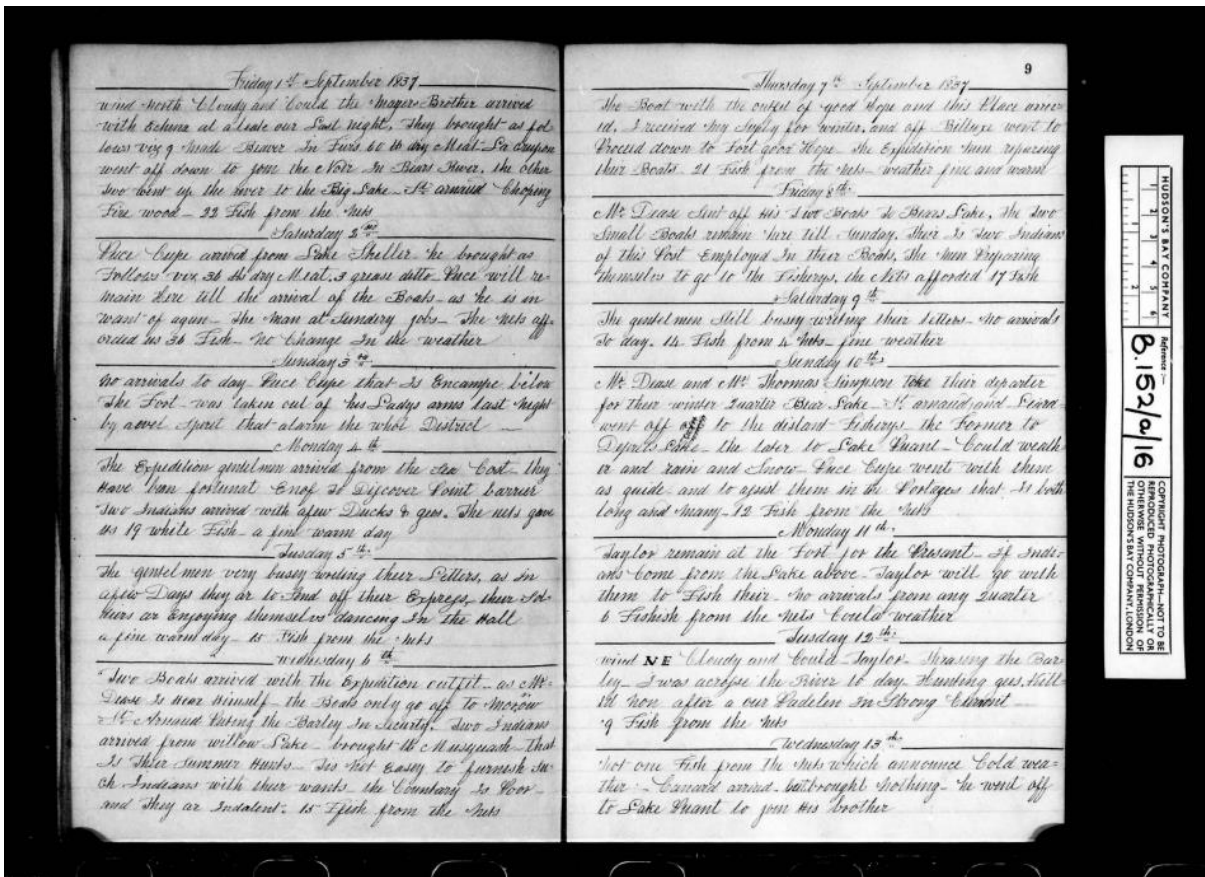 Friday 1st September 1837
wind North Cloudy and Could the Mayers Brother arrived
with Echena at a leate our Last night. They brought as fol
lows viz 9 Made Beaver In Furs. 60 lb dry Meat.
went off down to Join the Noir In Bears River. the other
Two went up the river to the Big Lake - St arnaud Choping
Fire wood - 22 Fish from the Nets
Saturday 2nd
Puce Cupe arrived from Lake he brought as
Follows viz 36 lb dry Meat. 3 grease ditto. Puce will re-
main Here till the arrival of the Boats - as he is in
want of agun - The Man at Sundery jobs - The Nets aff-
orded us 36 Fish - No Change In the weather
Sunday 3
No arrivals to day Puce Cupe that Is Encampe below
The Fort - was taken out of his Ladys arms last Night
by a evel Spirit that alarm the whol District -
Monday 4th
The Expedition gentelmen arrived from the Sea Cost - they
Have ben fortunat Enof To Discover Point barrier
Two Indians arrived with afew Ducks & gees. The nets gave
us 19 white Fish - a fine warm day
Tusday 5th
The gentelmen very busey writing theer Letters, as In
afew Days they ar to Send off their Express, their Sol-
diers ar Enjoying themselvs dancing In the Hall
a fine warm day - 15 Fish from the Nets
Wednesday 6th
Two Boats arrived with the Expedition outfit - as Mr
Dease Is Hear Himself - the Boats only go off to Morrow
St Arnaud Puting the Barley In Security. Two Indians
arrived from willow Lake - brought 16 Musquash - that
Is Their Summer Hunts - Tis Not Easey to furnish Su-
ch Indians with their wants - the Countary Is Poor -
and They ar Indalent. 15 Ffish from the Nets
9
Thursday 7th September 1837
The Boat with the outfit of good Hope and this Place arriv-
ed. I received My Suply for winter. and off went to
Proceed down to Fort good Hope - The Expidition Men repairing
their Boats - 21 Fish from the Nets - weather fine and warm
Friday 8th
Mr. Dease Sent off His Two Boats To Bears Lake, The Two
Small Boats remain Hire till Sunday, Their Is Two Indians
of this Post Employed In their Boats, The Men Preparing
themselvs to go to the Fisherys. the Nets afforded 17 Fish
Saturday 9th
The gentelmen Still busey writing their Letters - No arrivals
To day. 14 Fish from 4 Nets - fine weather
Sunday 10th
Mr. Dease and Mr. Thomas Simpson toke their departer
for their winter Quarter Bear Lake - St arnaud and Leard
went off to the distant Fisherys the Former to
Lake - the later to Lake - Could weath-
er and rain and Snow - Puce Cupe went with them
as guide - and to assist them in the Portages that Is both
long and Many - 12 Fish from the Nets
Monday 11th
Taylor remain at the Fort for the Presant - If Indi-
ans Come from the Lake above - Taylor will go with
them to Fish their - No arrivals from any Quarter
6 Fishish from the Nets Could weather
Tusday 12th
wind NE Cloudy and Could Taylor - Thrasing the Bar-
ley - I was acrosse the River to day - Hunting gees. Kill-
ed Non after a our Padelen In Strong Current
9 Fish from the Nets
Wednesday 13th
Not one Fish from the Nets which announce Cold wea-
ther - Canard arrived - but brought Nothing - he went off
to Lake to join His brother
HUDSON'S BAY COMPANY
1 2 3 4 5 6
1 2
Reference :-
B.152/a/16
COPYRIGHT PHOTOGRAPH—NOT TO BE
REPRODUCED PHOTOGRAPHICALLY OR
OTHERWISE WITHOUT PERMISSION OF
THE HUDSON'S BAY COMPANY, LONDON